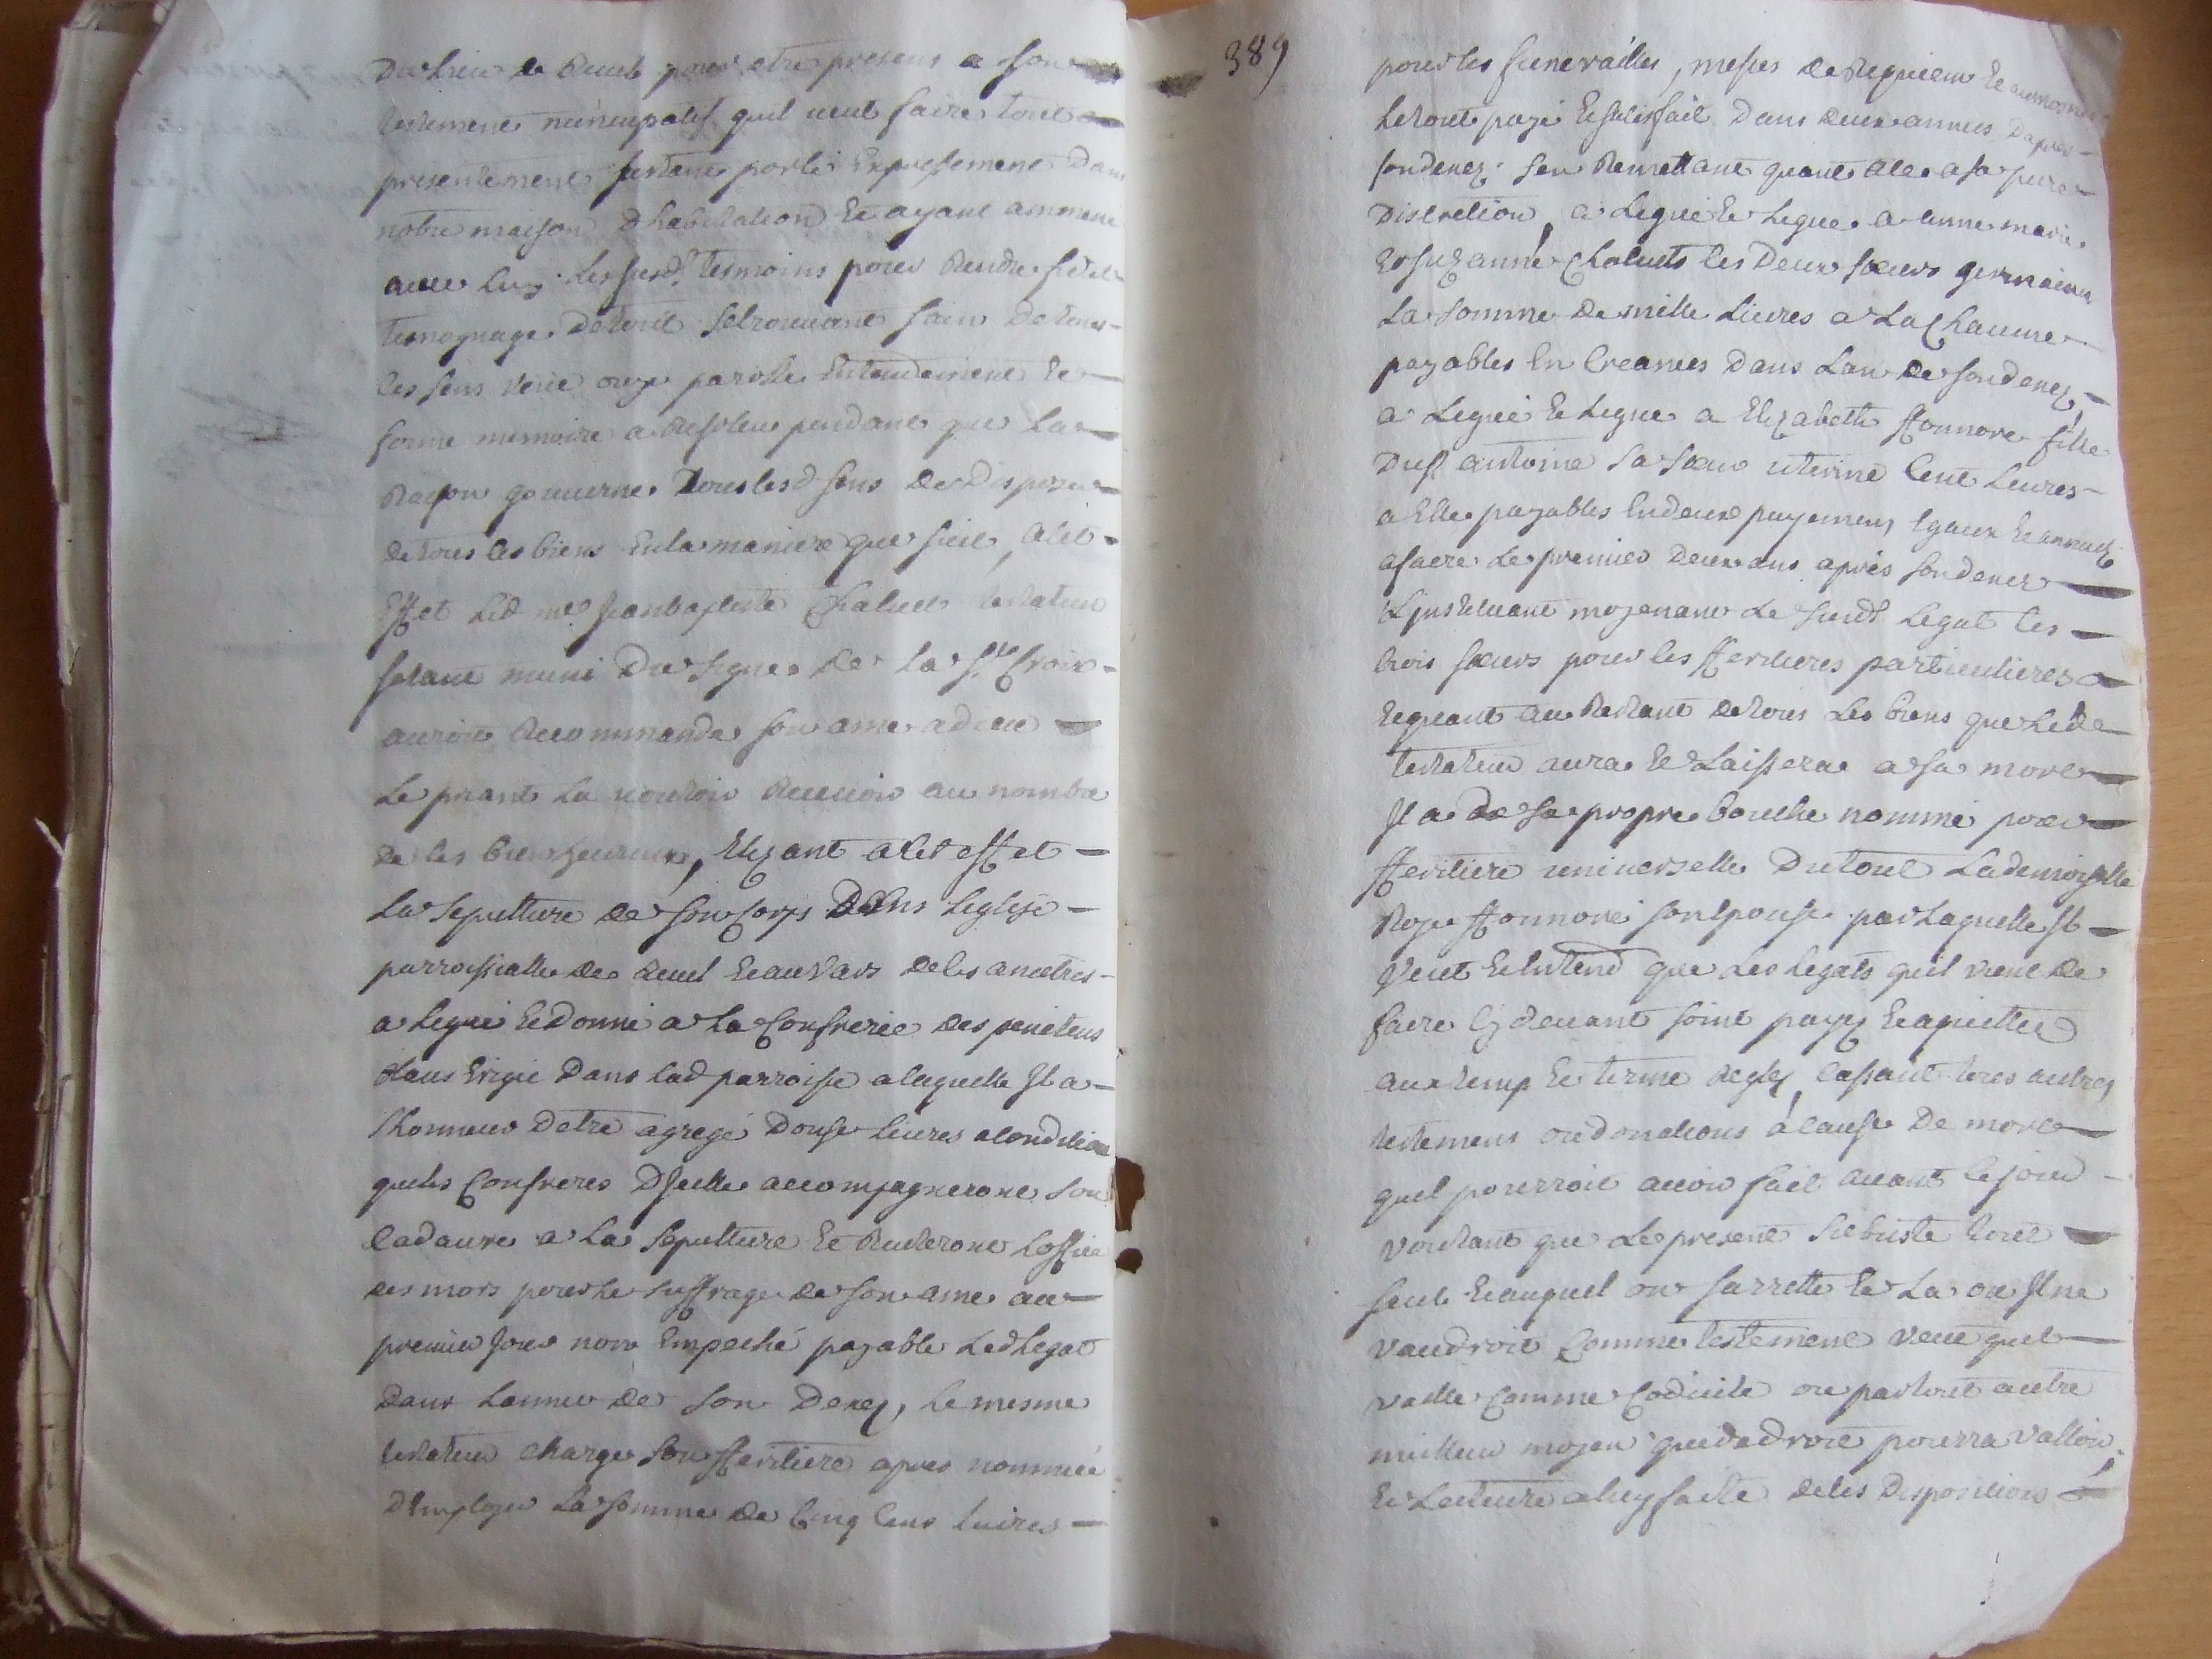 Du lieu de Reuel pour etre presens a son
testement nuncupatif quil ueut faire tout
presentement sestant porté Expressement Dans
nobre maison D habitation Et ayant ammené
auec luy les susd. tesmoins pour Rendre fidel
temognage De tout Setrouuant sain De tous
ces sens veüe ouye parolle Entendement Et
ferme memoire a Resoleu pendant que La
Raison gouuerne touts lesd sens De Disposer
de tous ces biens En la maniere que suit, a cet
Effet Led me Jean baptiste Chaluet testateur
sestant muni Du signe De La Ste Croix
auroit Recommandé son ame a dieu
Le priant La vouloir Receuoir au nombre
de ces bienheureux, Elizant a cet effet
La Sepulture De son Corps Dans Leglise
parroissialle De Reuel Et au Vas de ces ancetres
a Legué Et donné a La Confrerie Des penitens
blans Erigée Dans lad parroisse a laquelle Il a
Lhonneur Detre agregé Douse liures a condition
que les Confreres D Icelle accompagneront son
Cadaure a La Sepulture Et Reciteront Loffice
des mors pour le suffrage de son ame au
premier Jour non Empeché payable Led Legat
Dans Lannée de son Decez, Le mesme
testateur Charge son Heritiere apres nommée
d Employer La somme De Cinq Cens liures
389
pour les funerailles, messes de Requiem Et aumornes
Le tout payé Et satisfait Dans deux annees Dapres
son decez. Sen Remettant quant a ce a sa pure
Discretion, a Legué Et Legue a anne marie
Et suzanne Chaluets ces Deux sœurs germaines
La somme De mille Liures a La Chacune
payables En Creances Dans Lan De son decez,
a Legué Et Legue a Elizabeth Honnoré fille
Du sr antoine Sa sœur uterine Cent Liures
a Elle payables En deux payemens Egaux Et annuels
a faire Le premier Deux ans apres son decez
Linstituant moyenant Le susd. Legat Ces
trois sœurs pour ces Heritieres particulieres
Et quant au Restant de tous Les biens que Led
testateur aura Et Laissera a sa mort
Il a de sa propre bouche nommé pour
Heritiere uniuerselle Du tout La demoyselle
Rose Honnoré son Epouse par Laquelle Il
Veut Et Entend que Les Legats quil vient de
faire Cy deuant soint payez Et aquittez
aux temp Et terme Reglez, Cassant tous autres
testemens ou donations á Cause De mort
quil pourroit auoir fait auant Ce jour
Voulant que Le present Subciste tout
seul Et auquel on sarrette Et La ou Il ne
Vaudroit Comme testement Veut quil
Vaille Comme Codicile ou par tout autre
meilleur moyen que de droit pourra Valloir,
Et Lecture a luy faite de ces Dispositions